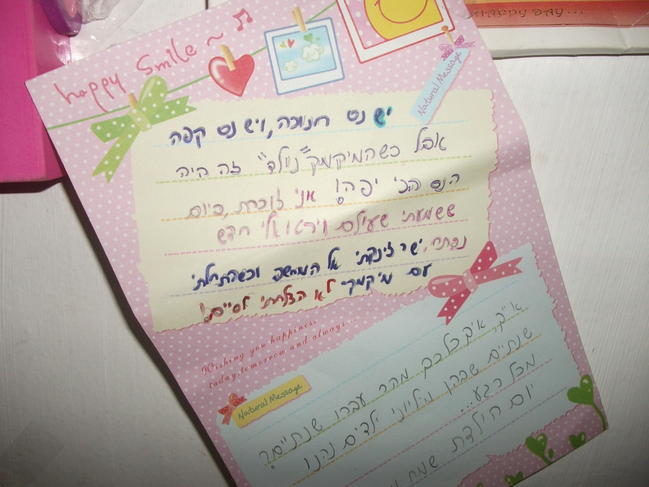 happy smile ~ ♫
HAPPY DAY...
Natural Message
יש נס חנוכה, ויש נס קפה
אבל כשהמיקמק "נולד" זה היה
הנס הכי יפה! אני זוכרת, ביום
ששמעתי שעולם וירטואלי חדש
נפתח, ישר זינקתי אל המחשב וכשהתחלתי
עם מיקמק- לא הצלחתי לסיים!
Wishing you happiness
today,tomorrow and always
Natural Message
איך, איך כל כך מהר עברו שנתיים?
שנתיים שבהן מיליוני ילדים נהנו
מכל רגע...
יום הולדת שמח